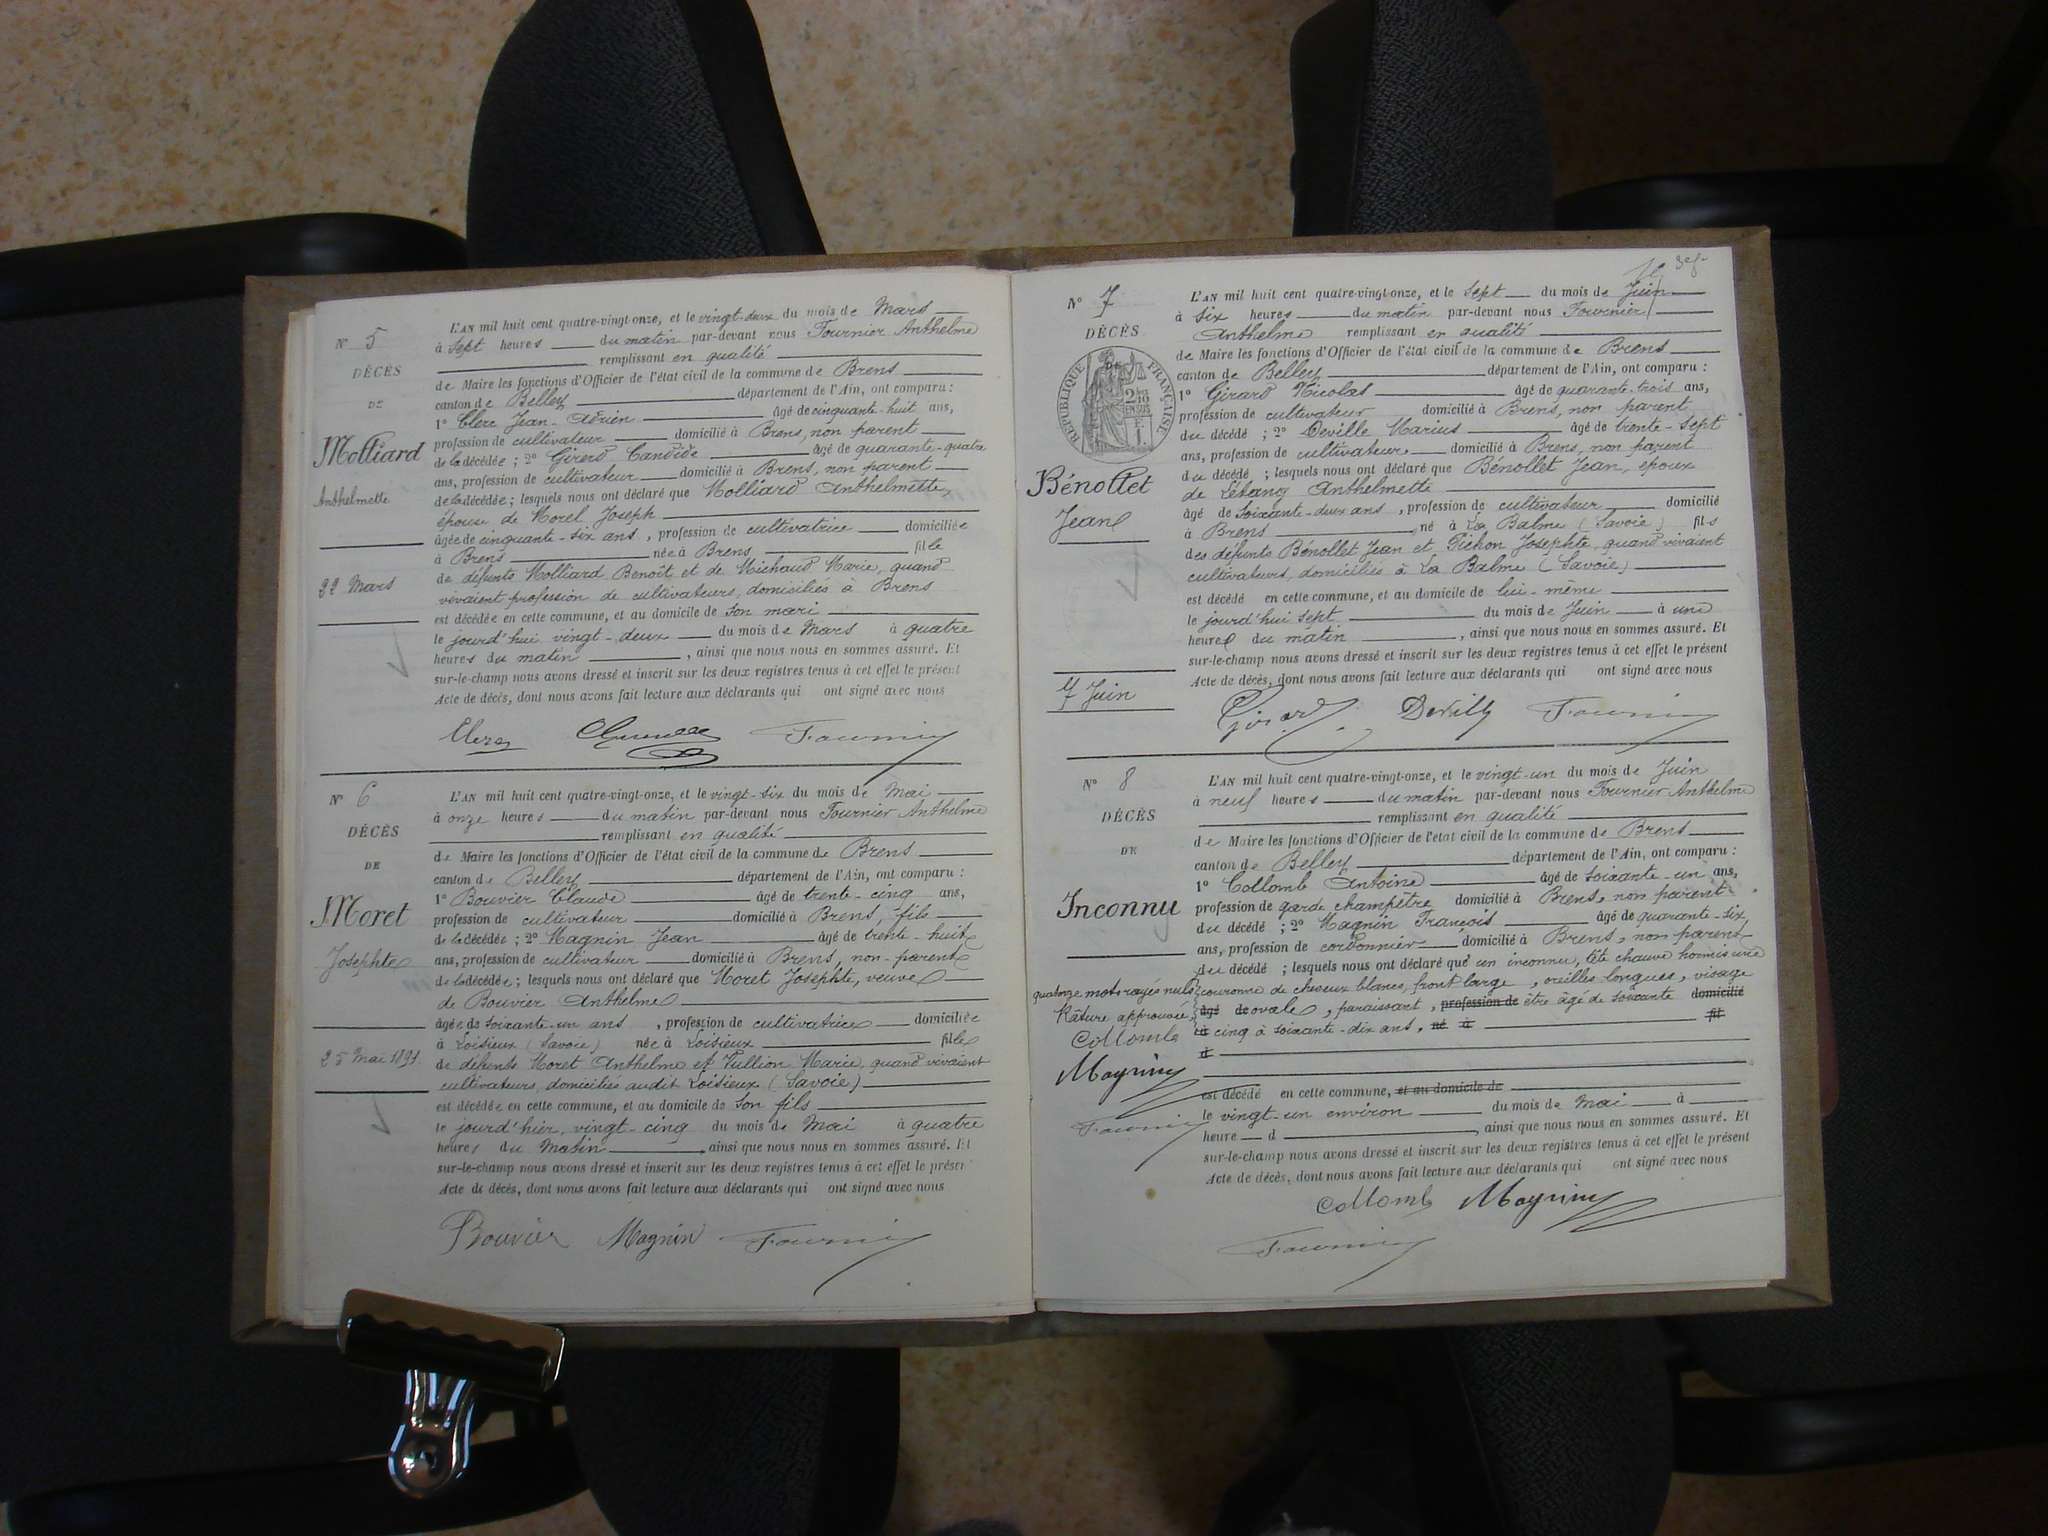 N° 5
DÉCÈS
DE
Molliard
Anthelmette
22 Mars
L'AN mil huit cent quatre-vingt-onze, et le vingt-deux du mois de Mars
à sept heures du matin par-devant nous Fournier Anthelme
remplissant en qualité
de Maire les fonctions d'Officier de l'état civil de la commune de Brens
canton de Belley département de l'Ain, ont comparu :
1° Clerc Jean-Adrien âgé de cinquante-huit ans,
profession de cultivateur domicilié à Brens, non parent
de la décédée ; 2° Girerd Candide âgé de quarante-quatre
ans, profession de cultivateur domicilié à Brens, non parent
de la décédée ; lesquels nous ont déclaré que Molliard Anthelmette,
épouse de Morel Joseph
âgée de cinquante-six ans, profession de cultivatrice domiciliée
à Brens née à Brens fille
de défunts Molliard Benoît et de Michaud Marie, quand
vivaient profession de cultivateurs, domiciliés à Brens
est décédée en cette commune, et au domicile de son mari
le jourd'hui vingt-deux du mois de Mars à quatre
heures du matin, ainsi que nous nous en sommes assuré. Et
sur-le-champ nous avons dressé et inscrit sur les deux registres tenus à cet effet le présent
Acte de décès, dont nous avons fait lecture aux déclarants qui ont signé avec nous
Clerc Fournier
N° 6
DÉCÈS
DE
Moret
Josephte
25 Mai 1891
L'AN mil huit cent quatre-vingt-onze, et le vingt-six du mois de Mai
à onze heures du matin par-devant nous Fournier Anthelme
remplissant en qualité
de Maire les fonctions d'Officier de l'état civil de la commune de Brens
canton de Belley département de l'Ain, ont comparu :
1° Bouvier Claude âgé de trente-cinq ans,
profession de cultivateur domicilié à Brens, fils
de la décédée ; 2° Magnin Jean âgé de trente-huit
ans, profession de cultivateur domicilié à Brens, non-parent
de la décédée ; lesquels nous ont déclaré que Moret Josephte, veuve
de Bouvier Anthelme
âgée de soixante-un ans, profession de cultivatrice domiciliée
à Loisieux (Savoie) née à Loisieux fille
de défunts Moret Anthelme et Vullion Marie, quand vivaient
cultivateurs, domiciliés audit Loisieux (Savoie)
est décédée en cette commune, et au domicile de son fils
le jourd'hier, vingt-cinq du mois de Mai à quatre
heures du Matin, ainsi que nous nous en sommes assuré. Et
sur-le-champ nous avons dressé et inscrit sur les deux registres tenus à cet effet le présent
Acte de décès, dont nous avons fait lecture aux déclarants qui ont signé avec nous
Bouvier Magnin Fournier
N° 7
DÉCÈS
DE
RÉPUBLIQUE FRANÇAISE
Bénollet
Jean
7 Juin
L'AN mil huit cent quatre-vingt-onze, et le sept du mois de Juin
à six heures du matin par-devant nous Fournier
Anthelme remplissant en qualité
de Maire les fonctions d'Officier de l'état civil de la commune de Brens
canton de Belley département de l'Ain, ont comparu :
1° Girard Nicolas âgé de quarante-trois ans,
profession de cultivateur domicilié à Brens, non parent
du décédé ; 2° Deville Marius âgé de trente-sept
ans, profession de cultivateur domicilié à Brens, non parent
du décédé ; lesquels nous ont déclaré que Bénollet Jean, époux
de Létang Anthelmette
âgé de soixante-deux ans, profession de cultivateur domicilié
à Brens, né à La Balme (Savoie) fils
des défunts Bénollet Jean et Pichon Josephte, quand vivaient
cultivateurs, domiciliés à La Balme (Savoie)
est décédé en cette commune, et au domicile de lui-même
le jourd'hui sept du mois de Juin à une
heure du matin, ainsi que nous nous en sommes assuré. Et
sur-le-champ nous avons dressé et inscrit sur les deux registres tenus à cet effet le présent
Acte de décès, dont nous avons fait lecture aux déclarants qui ont signé avec nous
Girard Deville Fournier
N° 8
DÉCÈS
DE
Inconnu
quatorze mots rayés nuls
Râture approuvée
Collomb
Magnin
Fournier
L'AN mil huit cent quatre-vingt-onze, et le vingt-un du mois de Juin
à neuf heures du matin par-devant nous Fournier Anthelme
remplissant en qualité
de Maire les fonctions d'Officier de l'état civil de la commune de Brens
canton de Belley département de l'Ain, ont comparu :
1° Collomb Antoine âgé de soixante-un ans,
profession de garde champêtre domicilié à Brens, non parent
du décédé ; 2° Magnin François âgé de quarante-six
ans, profession de cordonnier domicilié à Brens, non parent
du décédé ; lesquels nous ont déclaré que un inconnu, tête chauve hormis une
couronne de cheveux blancs, front large, oreilles longues, visage
âgé de ovale, paraissant, profession de être âgé de soixante domicilié
à cinq à soixante-dix ans, né à fil
d
est décédé en cette commune, et au domicile de
le vingt-un environ du mois de Mai à
heure d , ainsi que nous nous en sommes assuré. Et
sur-le-champ nous avons dressé et inscrit sur les deux registres tenus à cet effet le présent
Acte de décès, dont nous avons fait lecture aux déclarants qui ont signé avec nous
Collomb Magnin
Fournier